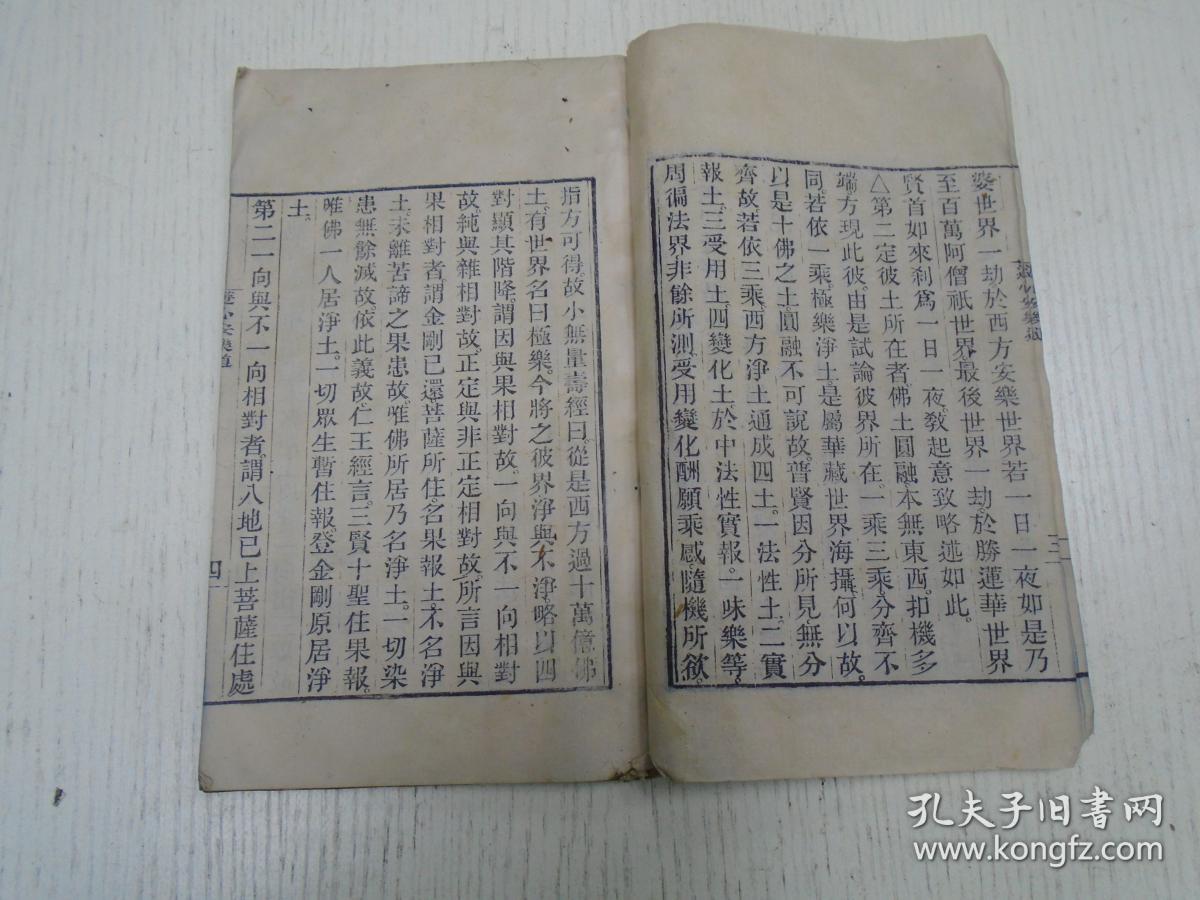 娑世界一劫於西方安樂世界若一日一夜如是乃
至百萬阿僧祇世界。最後世界一劫。於勝蓮華世界
賢首如來剎爲一日一夜。敎起意致略述如此。
△第二定彼土所在者。佛土圓融本無東西。扣機多
端。方現此彼。由是試論彼界所在。一乘三乘。分齊不
同。若依一乘。極樂淨土。是屬華藏世界海攝。何以故。
以是十佛之土。圓融不可說故。普賢因分所見。無分
齊故。若依三乘。西方淨土通成四土。一法性土。二實
報土。三受用土。四變化土。於中法性實報。一味樂等。
周徧法界。非餘所測。受用變化。酬願乘感。隨機所欲。
三
指方可得。故小無量壽經曰。從是西方過十萬億佛
土。有世界名曰極樂。今將之彼界淨與不淨。略以四
對顯其階降。謂因與果相對故。一向與不一向相對
故。純與雜相對故。正定與非正定相對故。所言因與
果相對者。謂金剛已還。菩薩所住。名果報土。不名淨
土。未離苦諦之果患故。唯佛所居乃名淨土。一切染
患無餘滅故。依此義故。仁王經言。三賢十聖住果報。
唯佛一人居淨土。一切眾生暫住報。登金剛原居淨
土。
第二一向與不一向相對者。謂八地已上菩薩住處
遊心安樂道
四
孔夫子旧书网
www.kongfz.com